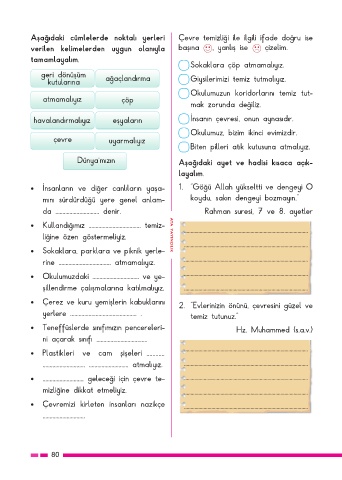 Aşağıdaki cümlelerde noktalı yerleri
verilen kelimelerden uygun olanıyla
tamamlayalım.
geri dönüşüm
kutularına
ağaçlandırma
atmamalıyız
çöp
havalandırmalıyız
eşyaların
çevre
uyarmalıyız
Dünya'mızın
• İnsanların ve diğer canlıların yaşa-
mını sürdürdüğü yere genel anlam-
da ........................ denir.
• Kullandığımız ........................ temiz-
liğine özen göstermeliyiz.
• Sokaklara, parklara ve piknik yerle-
rine ........................ atmamalıyız.
• Okulumuzdaki ........................ ve ye-
şillendirme çalışmalarına katılmalıyız.
• Çerez ve kuru yemişlerin kabuklarını
yerlere ........................ .
• Teneffüslerde sınıfımızın pencereleri-
ni açarak sınıfı ........................
• Plastikleri ve cam şişeleri ..........
........................ ........................ atmalıyız.
• ........................ geleceği için çevre te-
mizliğine dikkat etmeliyiz.
• Çevremizi kirleten insanları nazikçe
........................
80
Çevre temizliği ile ilgili ifade doğru ise
başına , yanlış ise çizelim.
Sokaklara çöp atmamalıyız.
Giysilerimizi temiz tutmalıyız.
Okulumuzun koridorlarını temiz tut-
mak zorunda değiliz.
İnsanın çevresi, onun aynasıdır.
Okulumuz, bizim ikinci evimizdir.
Biten pilleri atık kutusuna atmalıyız.
Aşağıdaki ayet ve hadisi kısaca açık-
layalım.
1. "Göğü Allah yükseltti ve dengeyi O
koydu, sakın dengeyi bozmayın."
Rahman suresi, 7 ve 8. ayetler
2. "Evlerinizin önünü, çevresini güzel ve
temiz tutunuz."
Hz. Muhammed (s.a.v.)